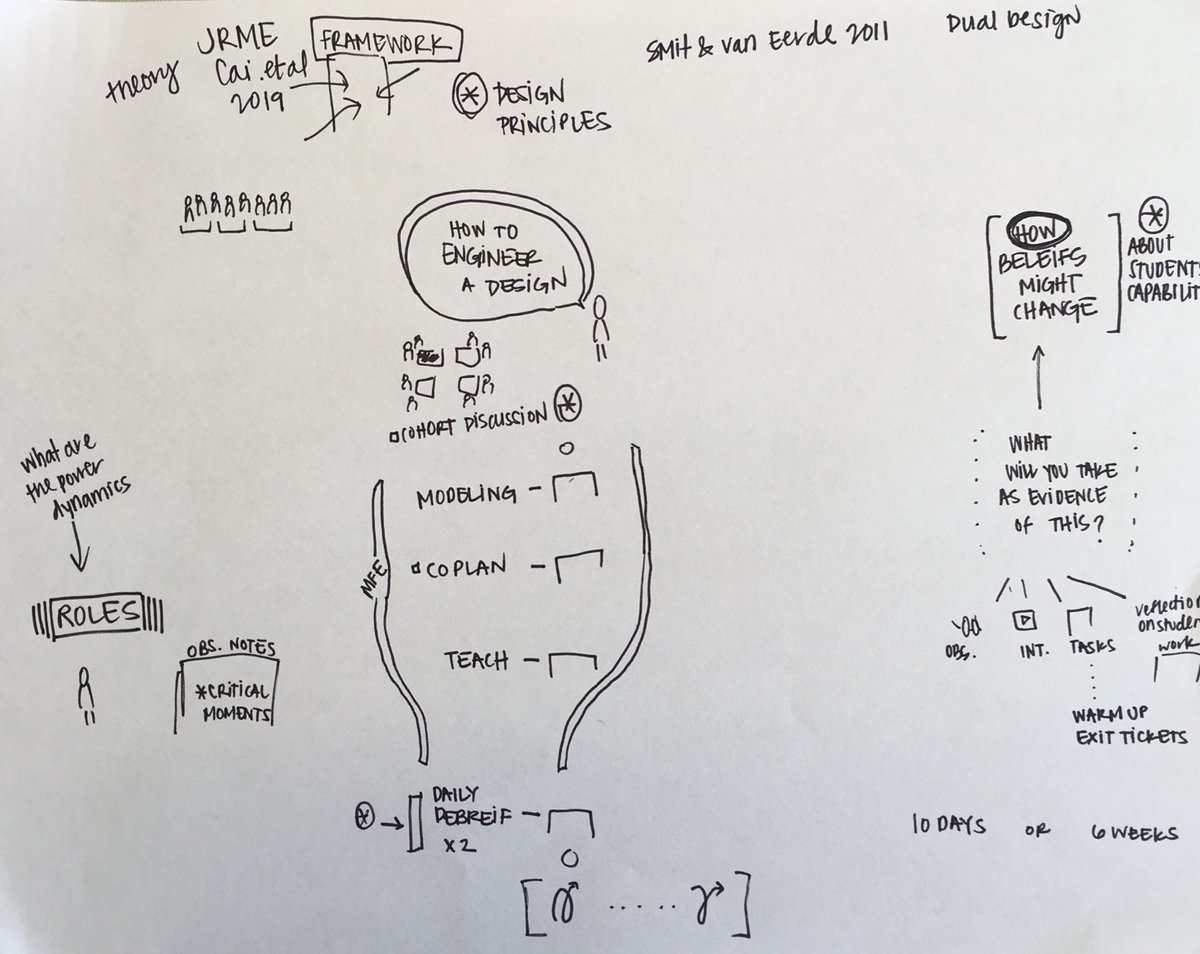 theory
JRME
Cai.etal
2019
FRAMEWORK
DESIGN
PRINCIPLES
SMit & van Eerde 2011
Dual Design
HOW TO
ENGINEER
A DESIGN
COHORT DISCUSSION
MODELING -
COPLAN -
TEACH -
MFE
DAILY
DEBREIF -
X2
what are
the power
dynamics
ROLES
OBS. NOTES
*CRITICAL
MOMENTS
HOW
BELEIFS
MIGHT
CHANGE
ABOUT
STUDENTS
CAPABILIT
WHAT
WILL YOU TAKE
AS EVIDENCE
OF THIS?
OBS.
INT.
TASKS
reflection
on studen
work
WARM UP
EXIT TICKETS
10 DAYS OR 6 WEEKS